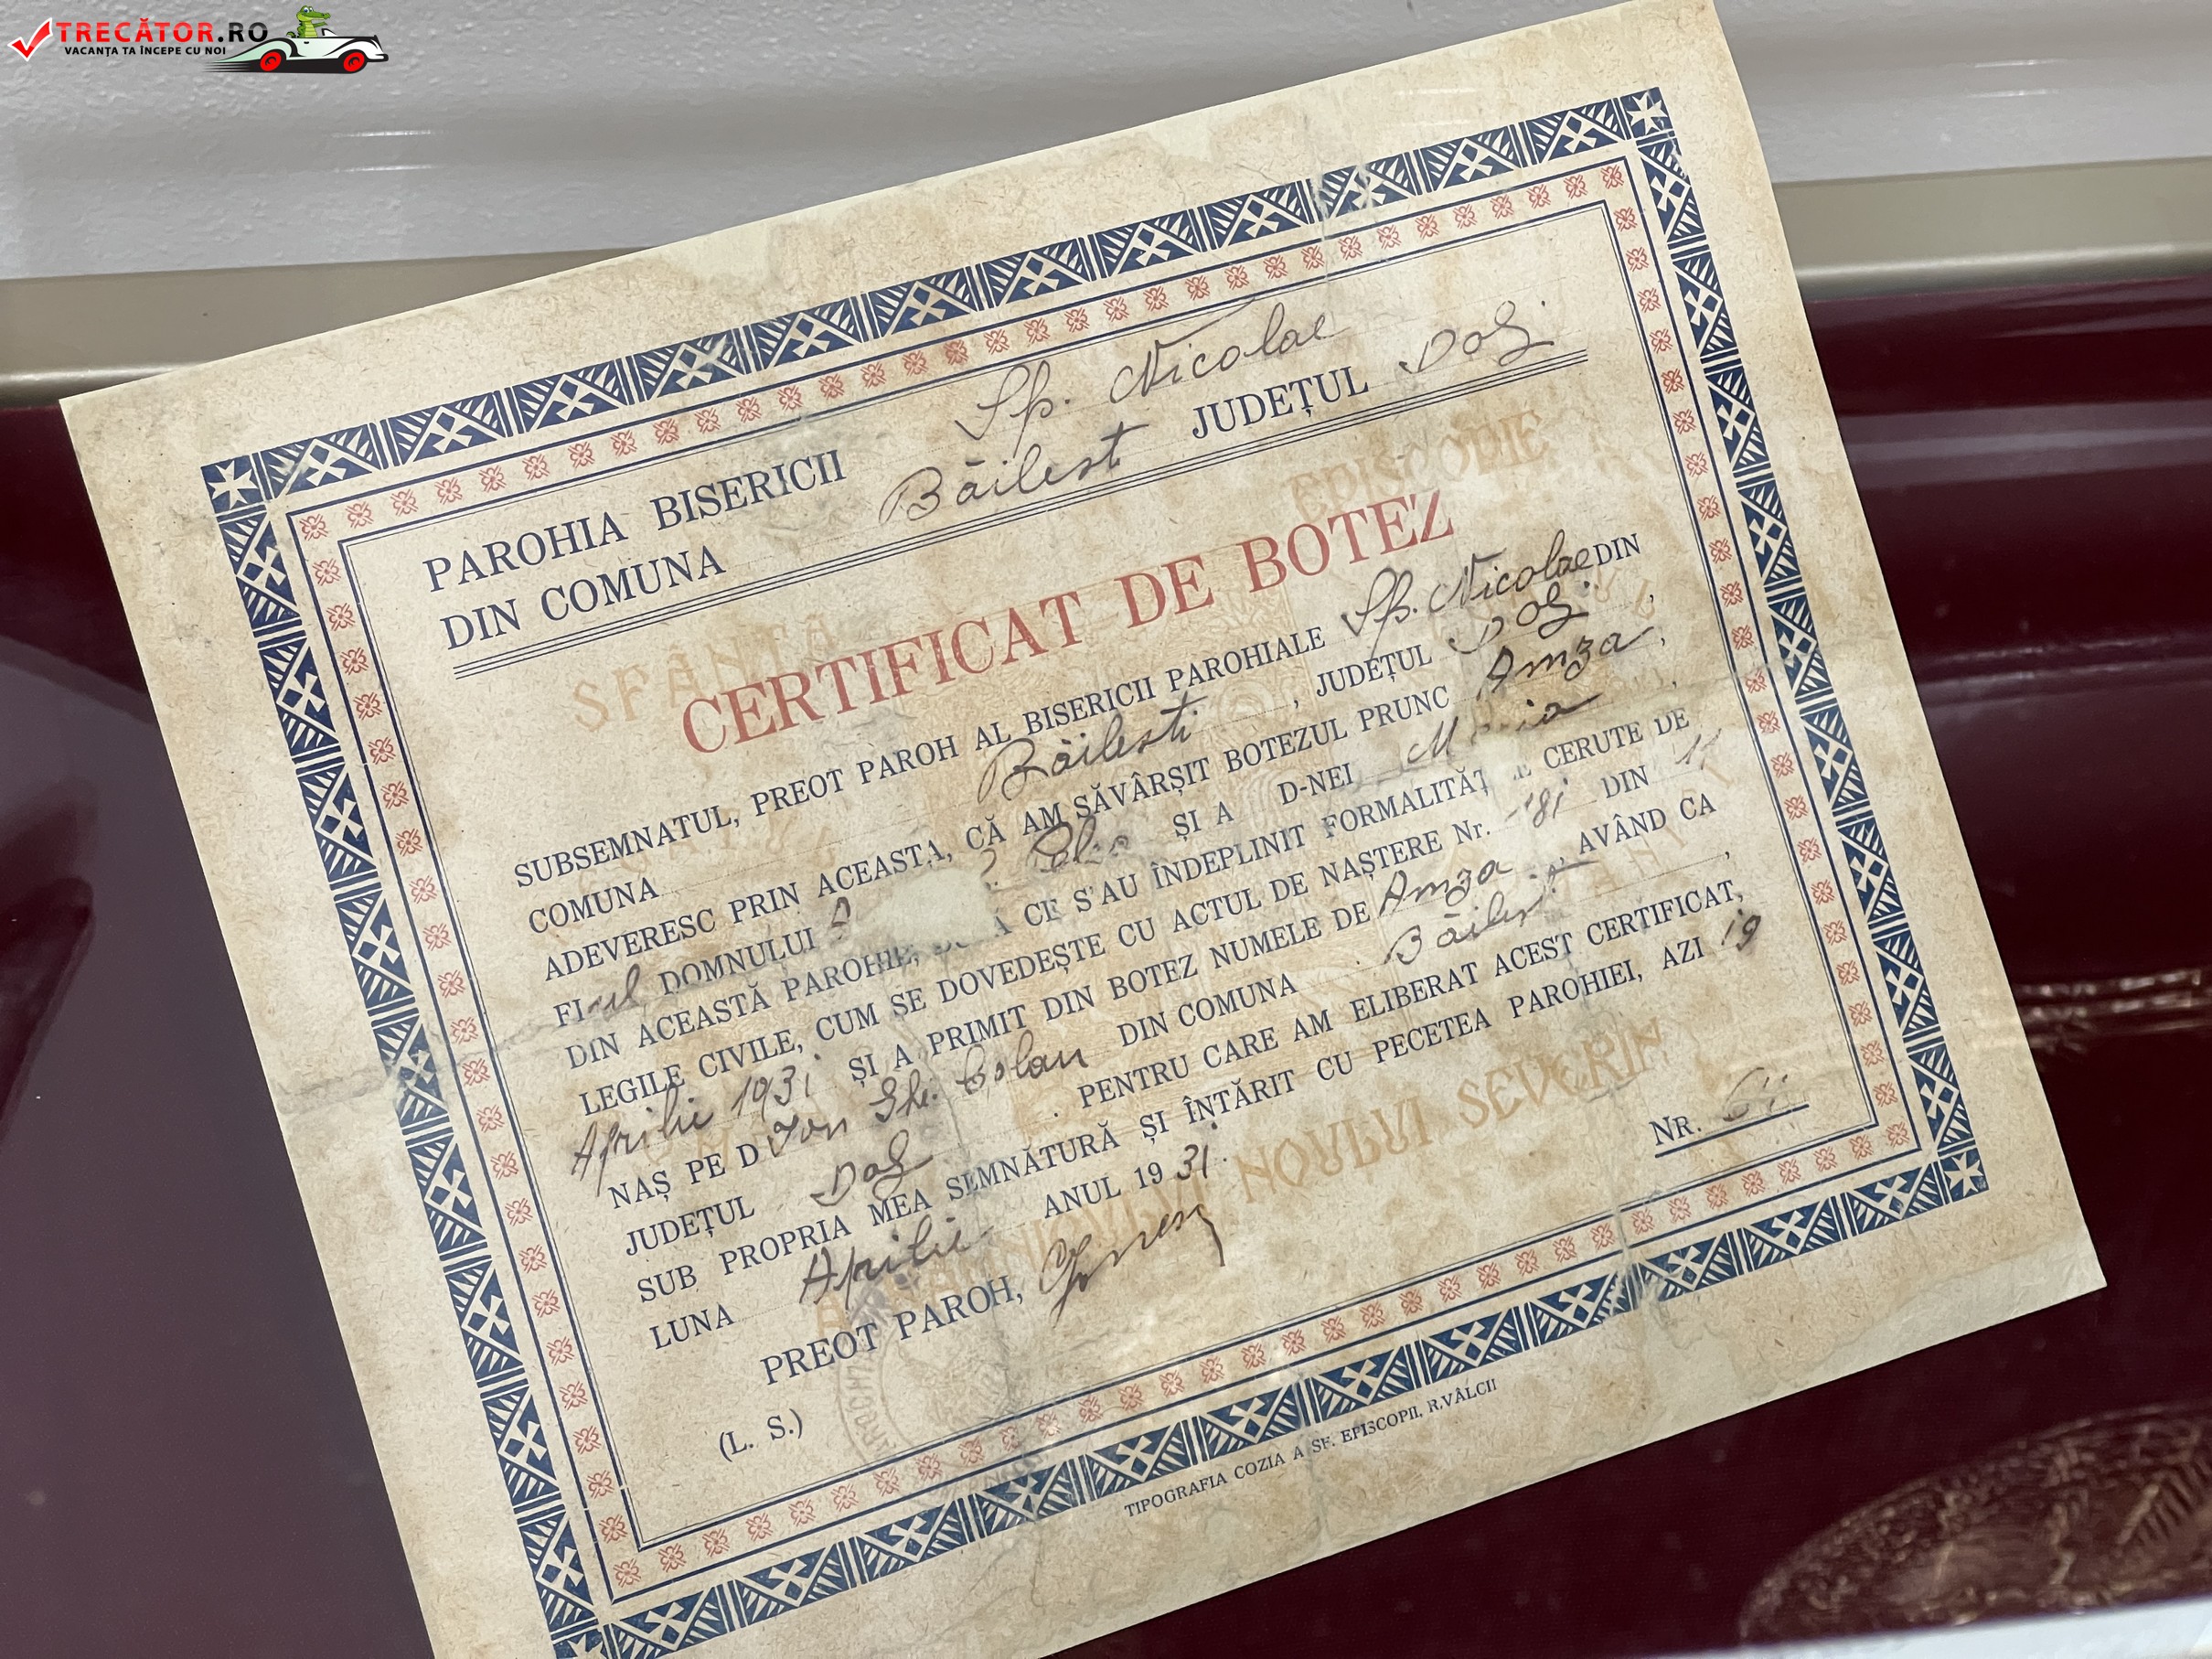 TRECĂTOR.RO
VACANȚA TA ÎNCEPE CU NOI
PAROHIA BISERICII Sf. Nicolae
DIN COMUNA Băilest JUDEȚUL Dolj
CERTIFICAT DE BOTEZ
SUBSEMNATUL, PREOT PAROH AL BISERICII PAROHIALE Sf. Nicolae DIN
COMUNA Băilesti, JUDEȚUL Dolj,
ADEVERESC PRIN ACEASTA, CĂ AM SĂVÂRȘIT BOTEZUL PRUNC Amza,
FI-ul DOMNULUI ȘI A D-NEI
DIN ACEASTĂ PAROHIE, CE S'AU ÎNDEPLINIT CERUTE DE
LEGILE CIVILE, CUM SE DOVEDEȘTE CU ACTUL DE NAȘTERE Nr. 181 DIN 11
Aprilie 1931 ȘI A PRIMIT DIN BOTEZ NUMELE DE Amza, AVÂND CA
NAȘ PE D Ion Gh. DIN COMUNA,
JUDEȚUL Dolj. PENTRU CARE AM ELIBERAT ACEST CERTIFICAT,
SUB PROPRIA MEA SEMNĂTURĂ ȘI ÎNTĂRIT CU PECETEA PAROHIEI, AZI 19
LUNA Aprilie ANUL 1931.
PREOT PAROH,
NR.
(L. S.)
SFÂNTA
EPISCOPIE
NOULUI SEVERIN
TIPOGRAFIA COZIA A SF. EPISCOPII, R.VÂLCII